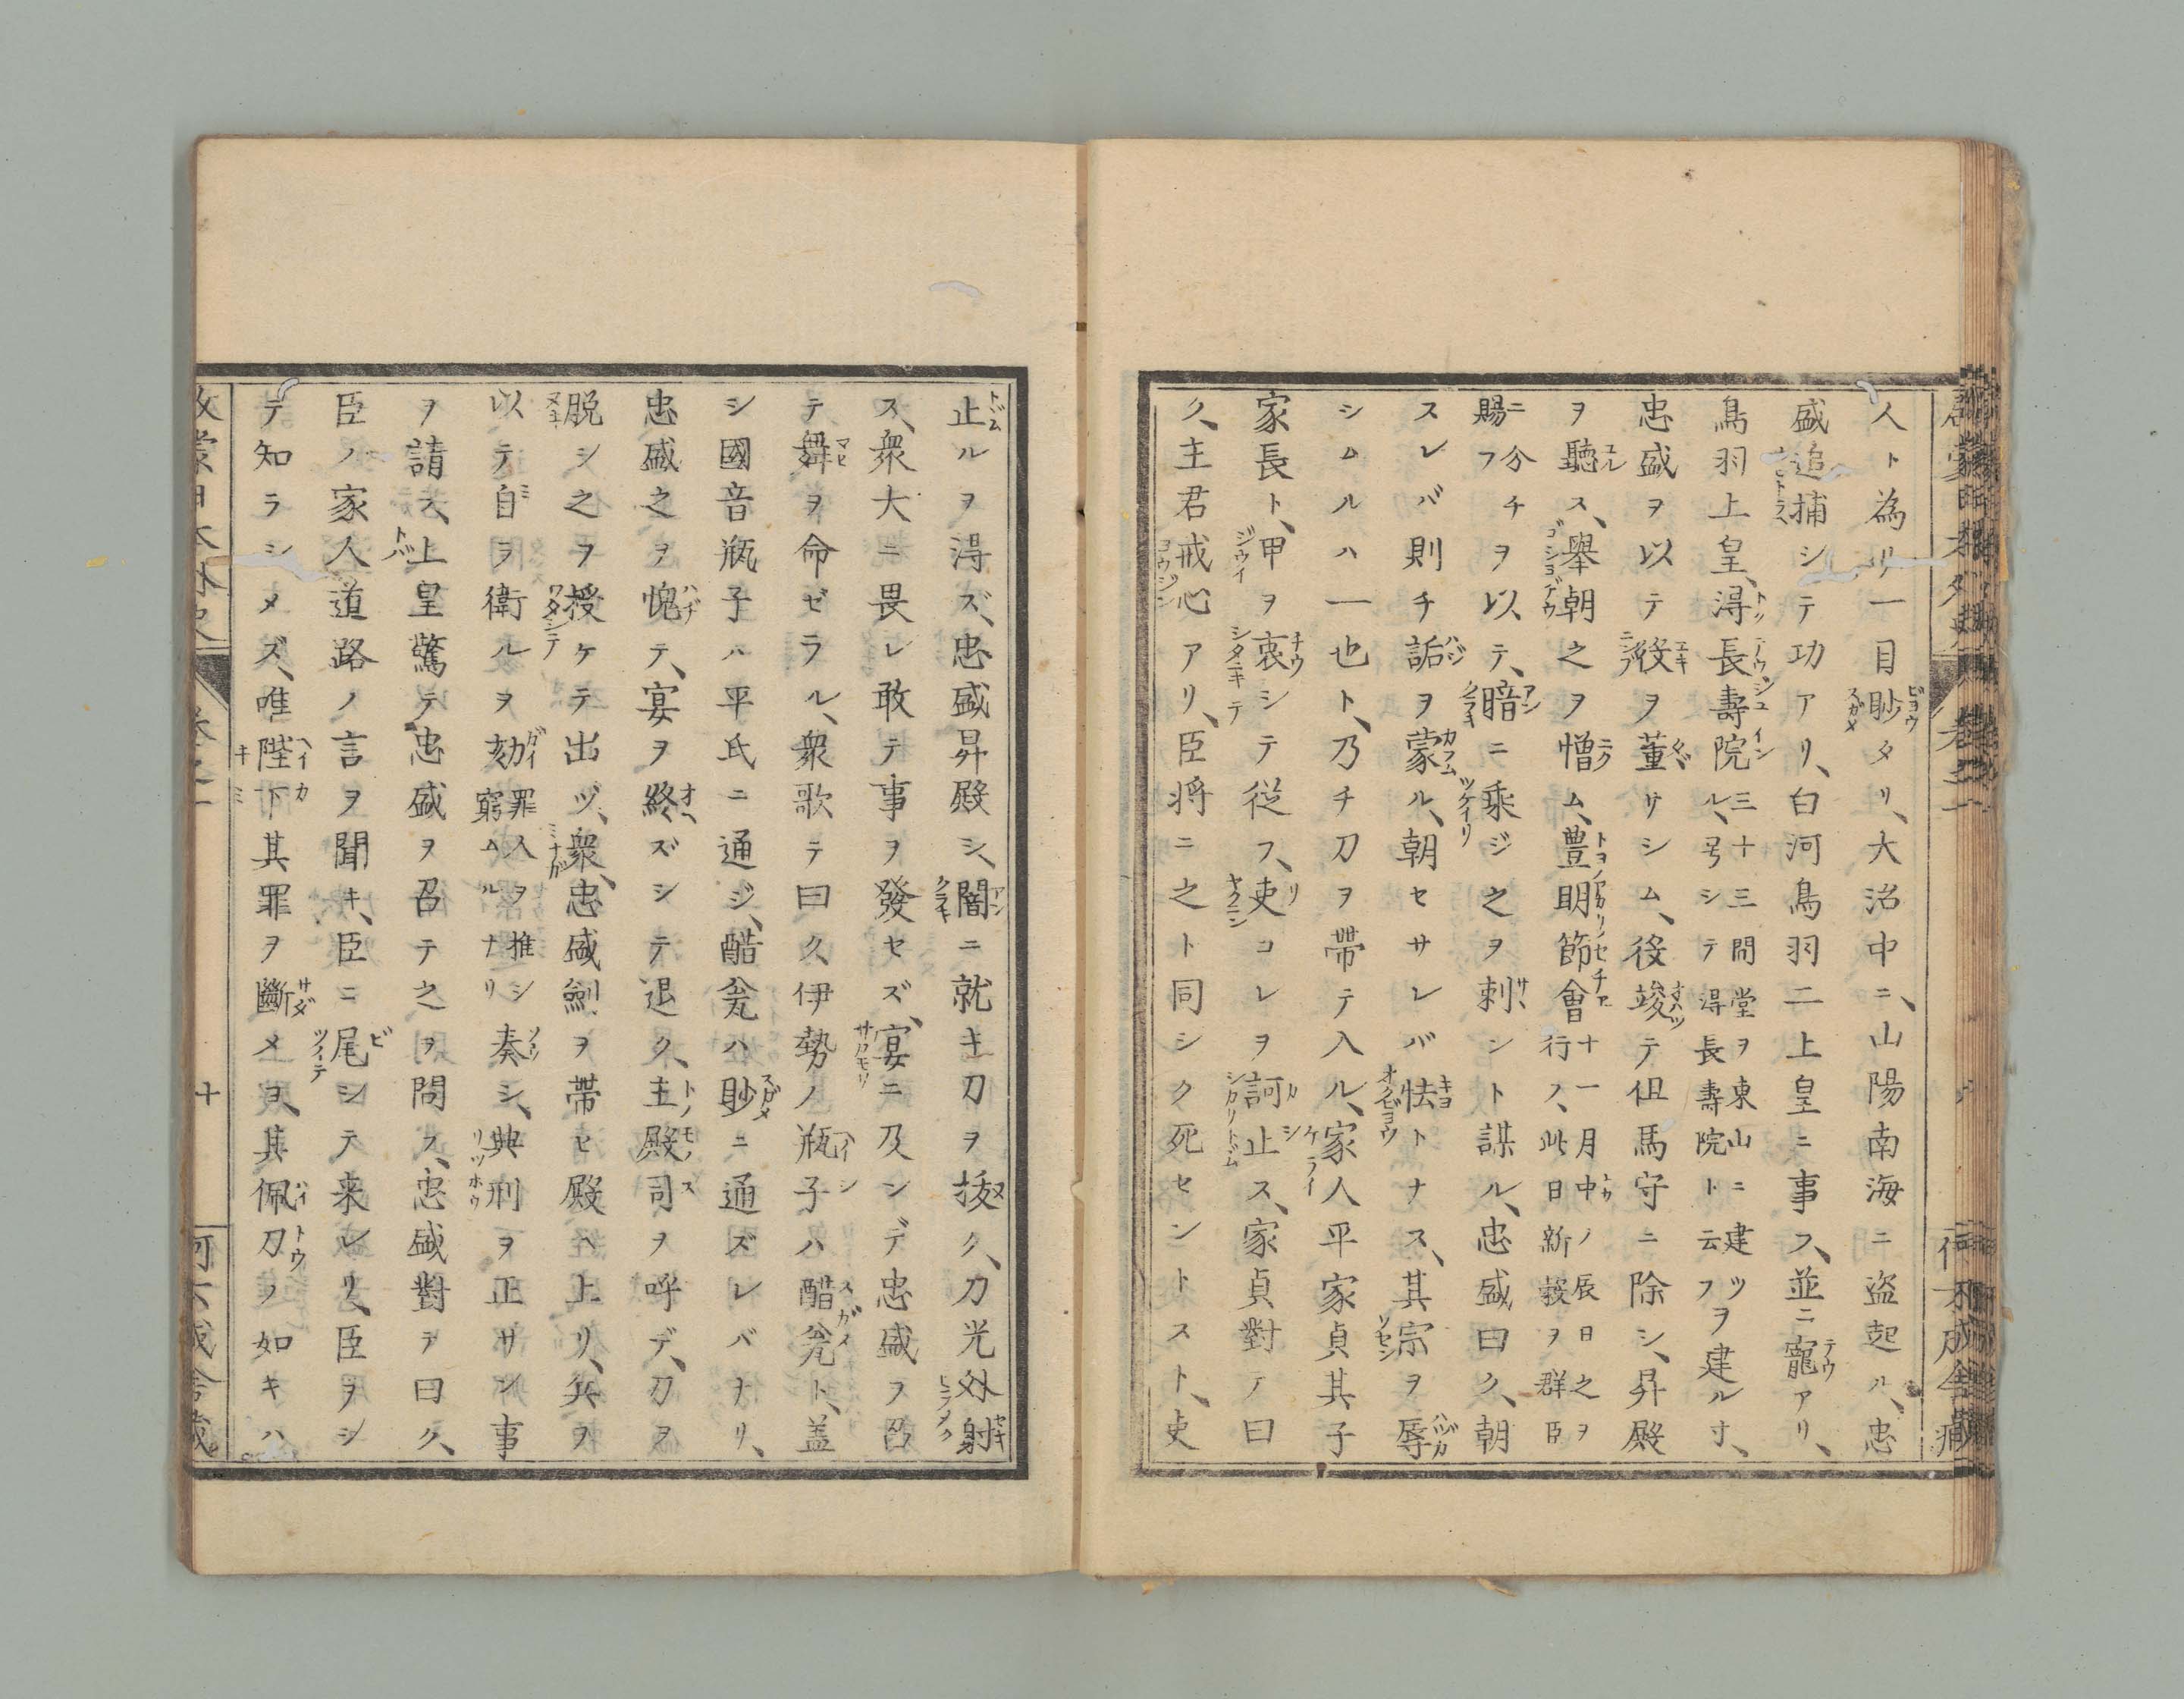 人ト為リ一目眇タリ、大治中ニ、山陽南海ニ盗起ル、忠
盛追捕シテ功アリ、白河鳥羽二上皇ニ事フ、並ニ寵アリ、
鳥羽上皇、得長壽院三十三間堂ヲ東山ニ建ツル、号シテ得長壽院ト云フヲ建ル寸、
忠盛ヲ以テ役ヲ董サシム、役竣テ但馬守ニ除シ、昇殿
ヲ聽ス、舉朝之ヲ憎ム、豊明節會十一月中ノ辰日之ヲ行ノ、此日新穀ヲ群臣
ニ分チ賜フヲ以テ、暗ニ乘ジ之ヲ刺ント謀ル、忠盛曰ク、朝
スレバ則チ詬ヲ蒙ル、朝セサレバ怯トナス、其宗ヲ辱
シムルハ一也ト、乃チ刀ヲ帶テ入ル、家人平家貞其子
家長ト、甲ヲ衷シテ従フ、吏コレヲ訶止ス、家貞對ノ曰
ク、主君戒心アリ、臣将ニ之ト同シク死セントスト、吏
止ルヲ得ズ、忠盛昇殿シ、闇ニ就キ刀ヲ拔ク、刀光外射
ス、衆大ニ畏レ敢テ事ヲ發セズ、宴ニ及ンデ忠盛ヲ召
テ舞ヲ命ゼラル、衆歌テ曰ク伊勢ノ瓶子ハ醋瓮ト、蓋
シ國音瓶子ハ平氏ニ通ジ、醋瓮ハ眇ニ通ズレバナリ、
忠盛之ヲ愧テ、宴ヲ終ズシテ退ク、主殿司ヲ呼デ、刀ヲ
脱シ之ヲ授ケテ出ヅ、衆、忠盛劍ヲ帶ヒ殿ヘ上リ、兵ヲ
以テ自ヲ衛ルヲ劾罪人ヲ推シ窮ムルナリ奏シ、典刑ヲ正サン事
ヲ請フ、上皇驚テ忠盛ヲ召テ之ヲ問フ、忠盛對テ曰ク、
臣ノ家人道路ノ言ヲ聞キ、臣ニ尾シテ来レリ、臣ヲシ
テ知ラシメズ、唯陛下其罪ヲ斷メヨ、其佩刀ノ如キハ
十